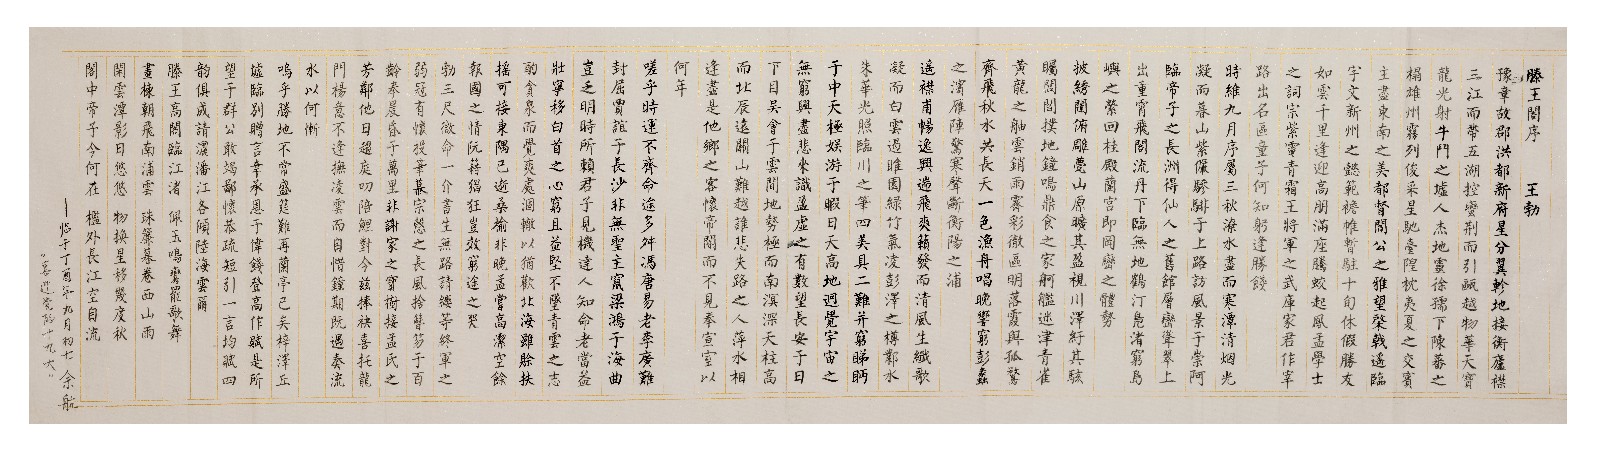 滕王閣序　王勃
豫章故郡洪都新府星分翼軫地接衡廬襟
三江而帶五湖控蠻荊而引甌越物華天寶
龍光射牛鬥之墟人杰地靈徐孺下陳蕃之
榻雄州霧列俊采星馳臺隍枕夷夏之交賓
主盡東南之美都督閻公之雅望棨戟遙臨
宇文新州之懿範襜帷暫駐十旬休假勝友
如雲千里逢迎高朋滿座騰蛟起鳳孟學士
之詞宗紫電青霜王將軍之武庫家君作宰
路出名區童子何知躬逢勝餞
時維九月序屬三秋潦水盡而寒潭清烟光
凝而暮山紫儼驂騑于上路訪風景于崇阿
臨帝子之長洲得仙人之舊館層巒聳翠上
出重霄飛閣流丹下臨無地鶴汀鳧渚窮島
嶼之縈回桂殿蘭宮即岡巒之體勢
披綉闥俯雕甍山原曠其盈視川澤紆其駭
矚閭閻撲地鐘鳴鼎食之家舸艦迷津青雀
黃龍之舳雲銷雨霽彩徹區明落霞與孤鶩
齊飛秋水共長天一色漁舟唱晚響窮彭蠡
之濱雁陣驚寒聲斷衡陽之浦
遥襟甫暢逸興遄飛爽籟發而清風生纖歌
凝而白雲遏睢園綠竹氣凌彭澤之樽鄴水
朱華光照臨川之筆四美具二難并窮睇眄
于中天極娛游于暇日天高地迥覺宇宙之
無窮興盡悲來識盈虛之有數望長安于日
下目吳會于雲間地勢極而南溟深天柱高
而北辰遠關山難越誰悲失路之人萍水相
逢盡是他鄉之客懷帝閽而不見奉宣室以
何年
嗟乎時運不齊命途多舛馮唐易老李廣難
封屈賈誼于長沙非無聖主竄梁鴻于海曲
豈乏明時所賴君子見機達人知命老當益
壯寧移白首之心窮且益堅不墜青雲之志
酌貪泉而覺爽處涸轍以猶歡北海雖賒扶
搖可接東隅已逝桑榆非晚孟嘗高潔空餘
報國之情阮藉猖狂豈效窮途之哭
勃三尺微命一介書生無路請纓等終軍之
弱冠有懷投筆慕宗慤之長風捨簪笏于百
齡奉晨昏于萬里非謝家之寶樹接孟氏之
芳鄰他日趨庭叨陪鯉對今茲捧袂喜托龍
門楊意不逢撫凌雲而自惜鐘期既遇奏流
水以何慚
嗚乎勝地不常盛筵難再蘭亭已矣梓澤丘
墟臨別贈言幸承恩于偉餞登高作賦是所
望于群公敢竭鄙懷恭疏短引一言均賦四
韵俱成請灑潘江各傾陸海雲爾
滕王高閣臨江渚　佩玉鳴鸞罷歌舞
畫棟朝飛南浦雲　珠簾暮卷西山雨
閑雲潭影日悠悠　物換星移幾度秋
閣中帝子今何在　檻外長江空自流
臨于丁酉年九月初七 余航